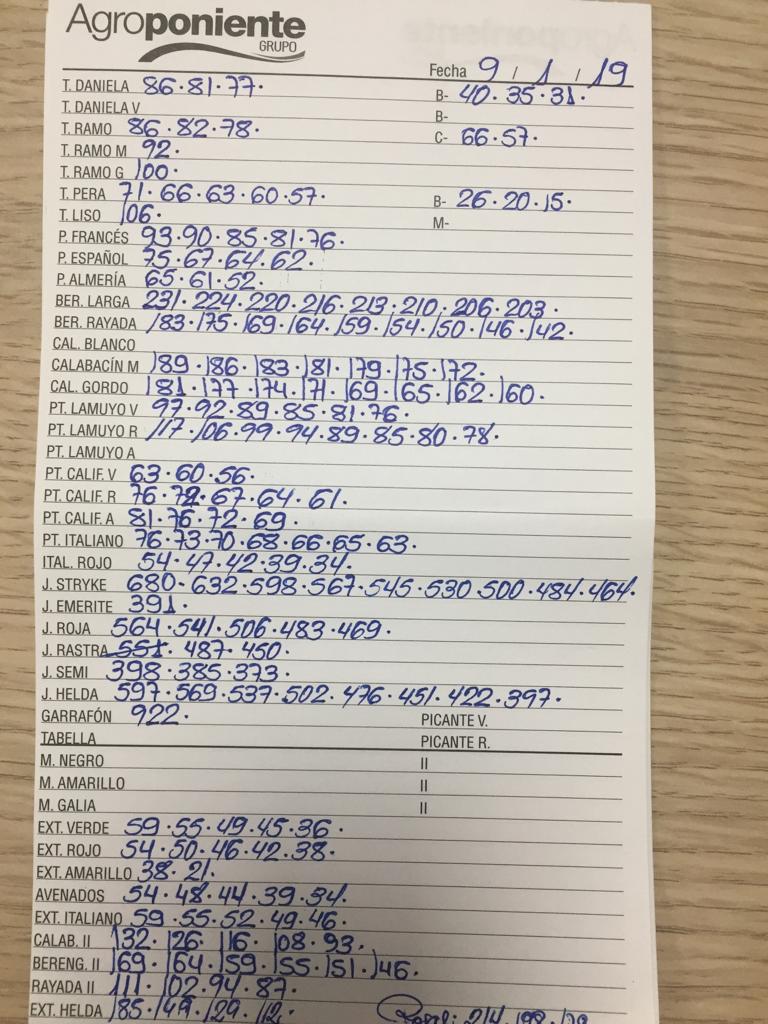 Agroponiente
GRUPO
Fecha 9 / 1 / 19
T. DANIELA 86.81.77. B- 40.35.31.
T. DANIELA V B-
T. RAMO 86.82.78. C- 66.57.
T. RAMO M 92.
T. RAMO G 100.
T. PERA 71.66.63.60.57. B- 26.20.15.
T. LISO 106. M-
P. FRANCÉS 93.90.85.81.76.
P. ESPAÑOL 75.67.64.62.
P. ALMERÍA 65.61.52.
BER. LARGA 231.224.220.216.213.210.206.203.
BER. RAYADA 183.175.169.164.159.154.150.146.142.
CAL. BLANCO
CALABACÍN M 189.186.183.181.179.175.172.
CAL. GORDO 181.177.174.171.169.165.162.160.
PT. LAMUYO V 97.92.89.85.81.76.
PT. LAMUYO R 117.106.99.94.89.85.80.78.
PT. LAMUYO A
PT. CALIF. V 63.60.56.
PT. CALIF. R 76.72.67.64.61.
PT. CALIF. A 81.76.72.69.
PT. ITALIANO 76.73.70.68.66.65.63.
ITAL. ROJO 54.47.42.39.34.
J. STRYKE 680.632.598.567.545.530.500.484.464.
J. EMERITE 391.
J. ROJA 564.541.506.483.469.
J. RASTRA 551.487.450.
J. SEMI 398.385.373.
J. HELDA 597.569.537.502.476.451.422.397.
GARRAFÓN 922. PICANTE V.
TABELLA PICANTE R.
M. NEGRO II
M. AMARILLO II
M. GALIA II
EXT. VERDE 59.55.49.45.36.
EXT. ROJO 54.50.46.42.38.
EXT. AMARILLO 38.21.
AVENADOS 54.48.44.39.34.
EXT. ITALIANO 59.55.52.49.46.
CALAB. II 132.126.116.108.93.
BERENG. II 169.164.159.155.151.146.
RAYADA II 111.102.94.87.
EXT. HELDA 185.149.129.112.